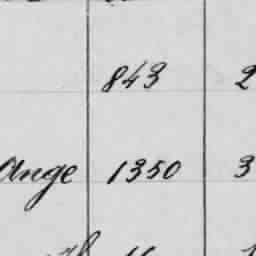 843 2
Ange 1350 3